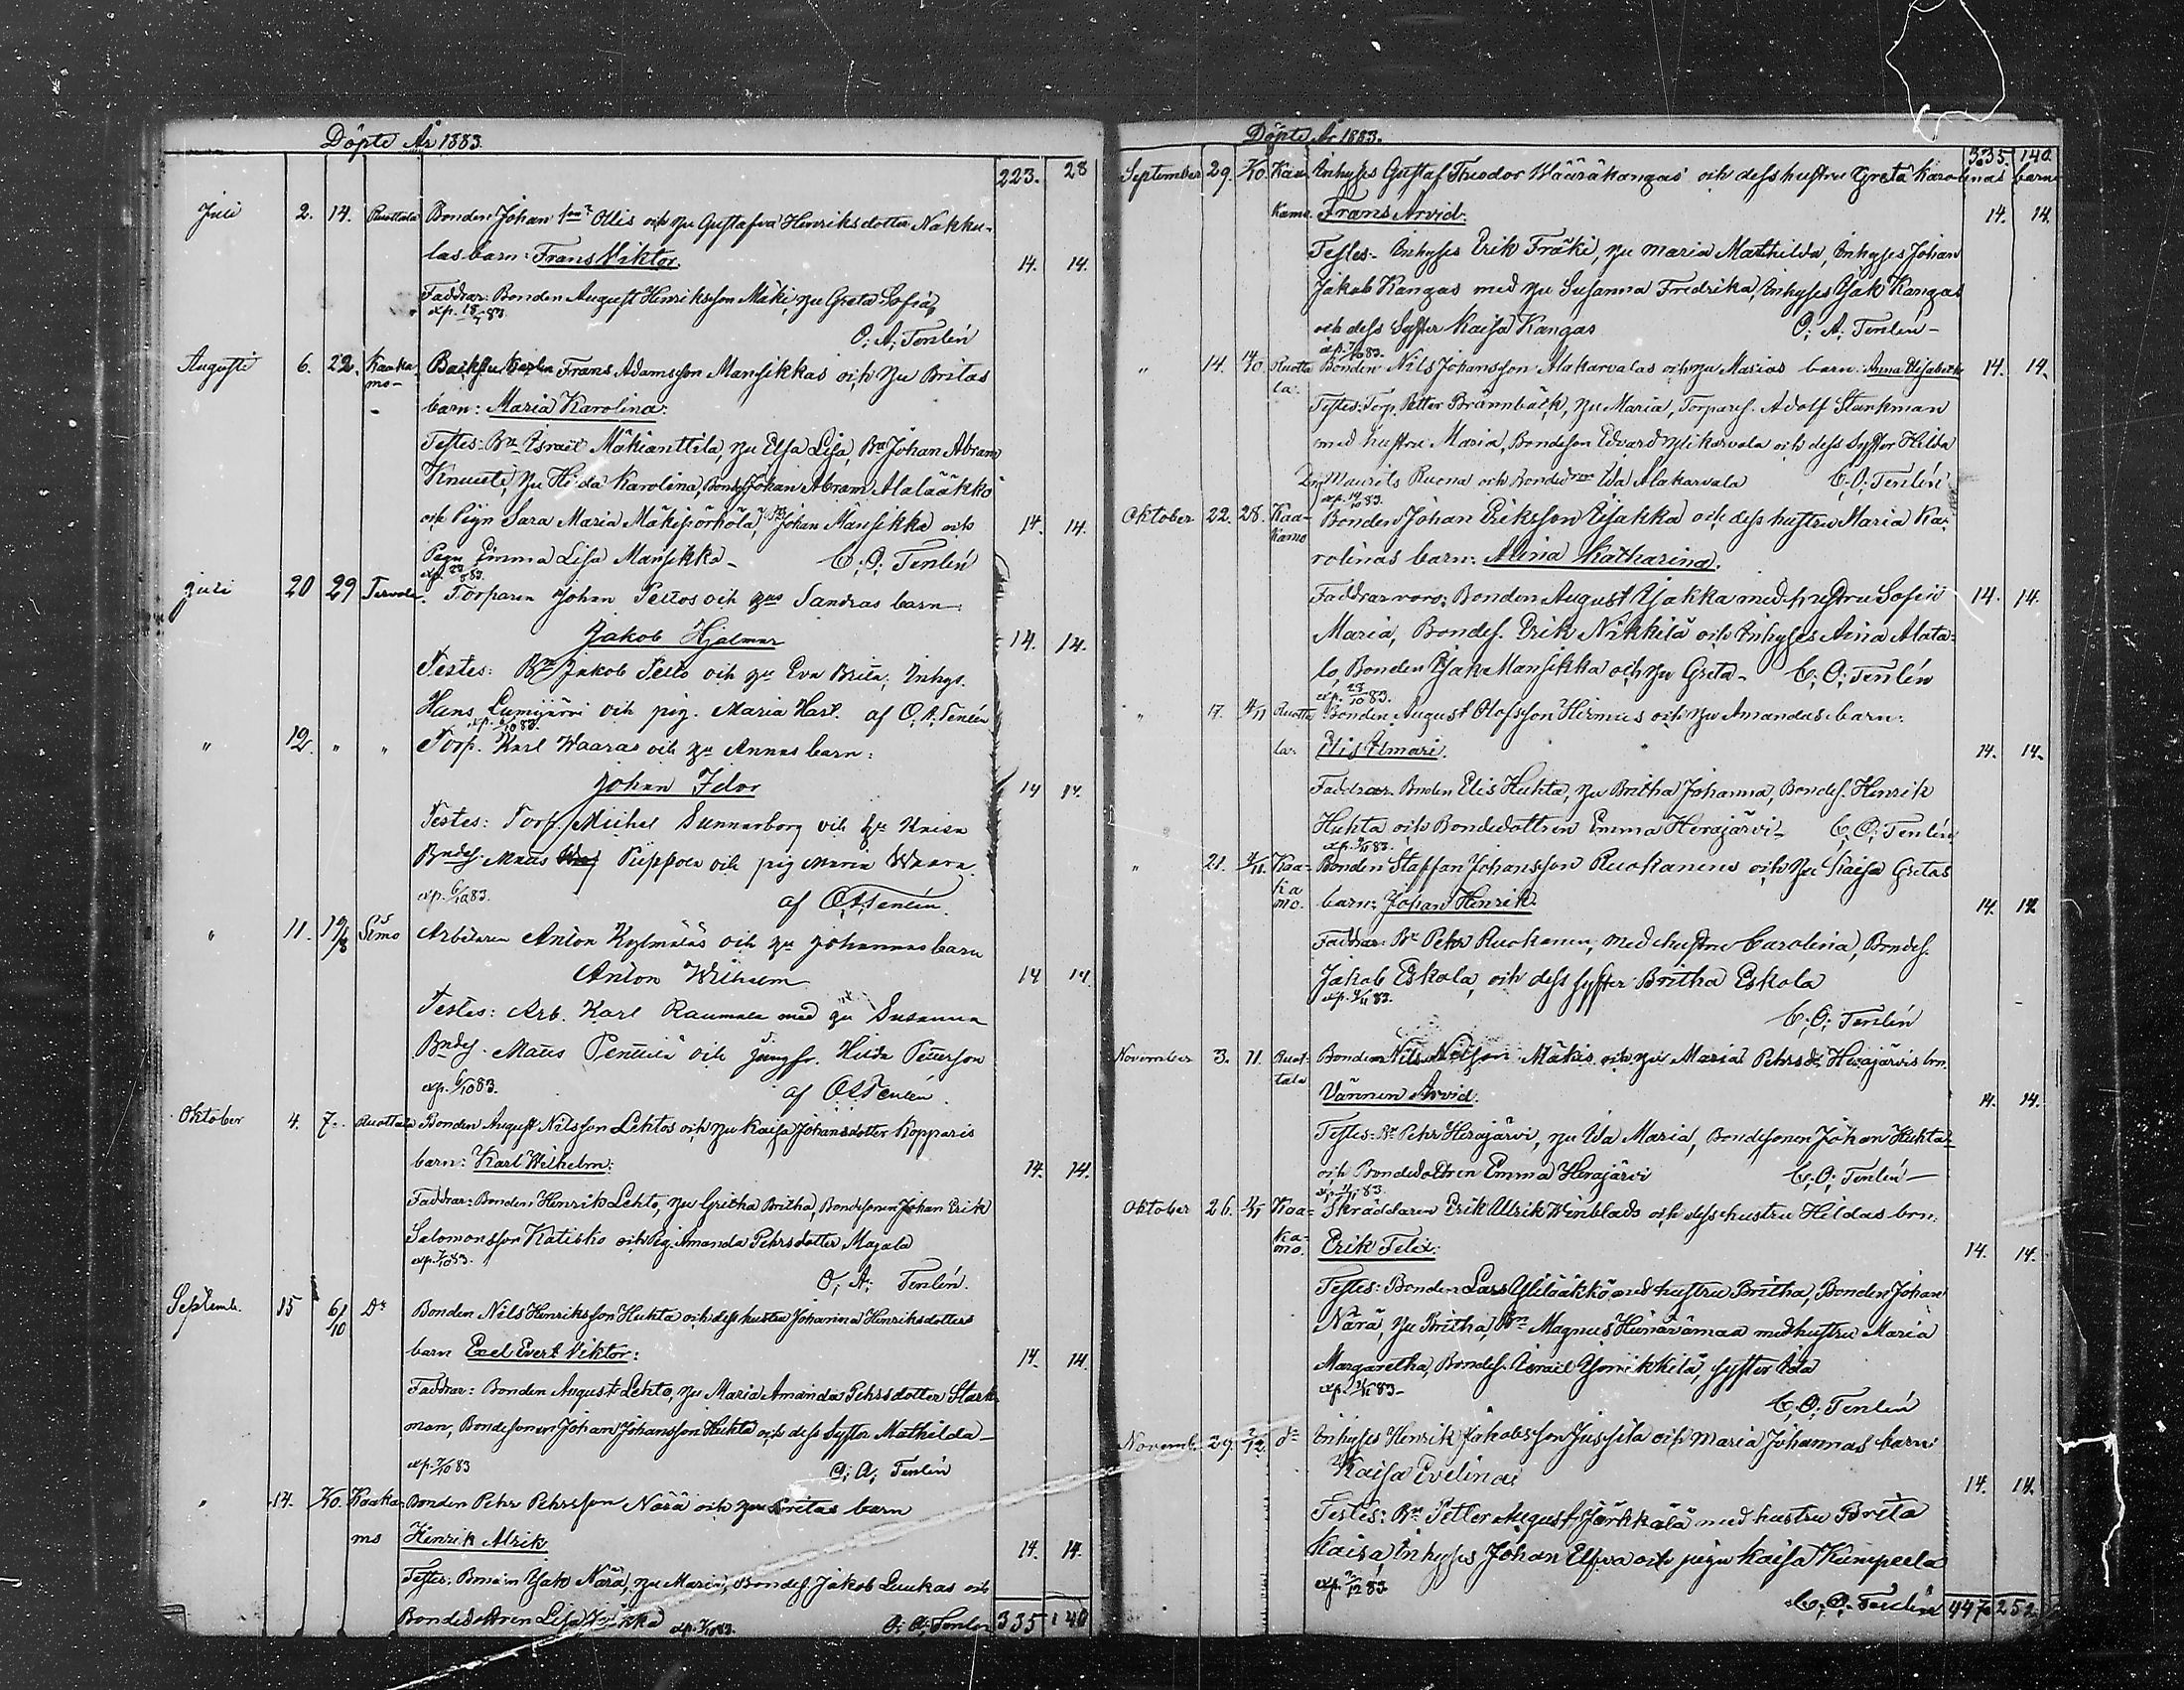 Döpte År 1883
223. 28
Juli 2. 14. Ruottala Bonden Johan Olis och hu Gustafva Henriksdotter Nakku-
las barn: Frans Viktor. 14. 14.
Faddrar: Bonden August Henriksson Mäki, hu Greta Sofia,
exp. 83.
O. A. Tenlén
Augusti 6. 22. Kaaka- Frans Adamsson Mansikkas och hu Britas
mo- barn: Maria Karolina.
Testes: Bn Israel Mäkianttila, hu Elsa Lisa, Bn Johan Abram
Knuuti, hu Hilda Karolina, Bondes Johan Abram Alalääkkö
och Pign Sara Maria Mäkipörhölä, Johan Mansikka och 14. 14.
Pign Emma Lisa Mansikka - C. O. Tenlén
exp. 83.
Juli 20 29 Tervola. Torparen Johan Pellos och hus Sandras barn
Jakob Hjalmar 14. 14.
Testes: Bn Jakob Pello och hu Eva Brita; Inhys.
Hans Lumijärvi och pig. Maria Hast. af O. A. Tenlén
exp. 6/10 83.
" 12. " " Torp. Karl Waaras och hu Annas barn:
Johan Idor 14 14.
Testes: Torp. Michel Sunnarborg och hu Kaisa
Bndes Matts Pieppola och pig Maria Waara.
exp. 6/10 83. af O A Tenlén.
" 11. 19/8 Simo Arbetaren Anton Kylmäläs och hu Johannas barn
Anton Wilhelm 14 14
Testes: Arb. Karl Raumala med hu Susanna
Bndes. Matts Penttilä och Jungfr. Hilda Petterson
exp. 6/10 83. af O A Tenlén.
Oktober 4. 7. Ruottala Bonden August Nilsson Lehtos och hu Kaisa Johansdotter Kopparis
barn: Karl Wilhelm. 14. 14.
Faddrar: Bonden Henrik Lehto, hu Gretha Britha, Bondesonen Johan Erik
Salomonsson Katisko och Pig. Amanda Pehrsdotter Magala
exp. 7/10 83.
O. A. Tenlén.
Septemb. 15 6/10 Do Bonden Nils Henriksson Huhta och dess hustru Johanna Henriksdotters
barn Exel Evert Viktor: 14. 14.
Faddrar: Bonden August Lehto, hu Maria Amanda Pehrsdotter Stark-
man, Bondesonen Johan Johansson Huhta och dess Syster Mathilda -
exp. 7/10 83 O. A. Tenlén
" 14. Kaaka- Bonden Pehr Pehrsson Närä och hu Britas barn
mo Henrik Alrik 14. 14.
Testes: Bonden Isak Närä, hu Maria, Bondes. Jakob Luukas och
Bondedottren Lisa exp. 7/10 83. O. A. Tenlén 335 140
Döpte År 1883.
335. 140.
September 29. Kaa- Inhyses Gustaf Theodor Wääräkangas och dess hustru Greta Karolinas barn
kamo. Frans Arvid. 14. 14.
Testes - Inhyses Erik Fräki, hu Maria Mathilda, Inhyses Johan
Jakob Kangas med hu Susanna Fredrika, Inhyses Isak Kangas
och dess Syster Kaisa Kangas O. A. Tenlén -
exp. 7/10 83.
" 14. 14/10 Ruotta- Bonden Nils Johansson Alakarvalas och hu Marias barn: Anna Elisabeth 14. 14.
la. Testes: Torp. Petter Brännbäck, hu Maria, Torpares. Adolf Starkman
med hustru Maria, Bondeson Edvard Ylikarvala och dess Syster Hilda
Maurits Ruona och Bonded Ida Alakarvala C. O. Tenlén
exp. 14/10 83.
Oktober 22. 28. Kaa- Bonden Johan Eriksson Isakka och dess hustru Maria Ka-
kamo rolinas barn: Alina Katharina.
Faddrar voro: Bonden August Isakka med hustru Sofia 14. 14.
Maria, Bondes. Erik Nikkilä och Inhyses Aina Alata-
lo, Bonden Isak Mansikka och hu Greta - C. O. Tenlén
exp. 28/10 83.
" 17. 4/11 Ruotta- Bonden August Olofsson Hirmus och hu Amandas barn:
la. Elis Ilmari. 14. 14.
Faddrar. Bnden Elis Huhta, hu Britha Johanna, Bondes. Henrik
Huhta och Bondedottren Emma Herajärvi - C. O. Tenlén
exp. 4/11 83.
" 21. 4/11. Kaa- Bonden Staffan Johansson Ruokanens och hu Kaisa Gretas
ka mo. barn: Johan Henrik. 14. 14.
Faddrar: Bn Pehr Ruokanen, med hustru Carolina, Bondes.
Jakob Eskola, och dess syster Britha Eskola
exp. 4/11 83.
C. O. Tenlén
November 3. 11. Ruot- Bonden Nils Nilsson Mäkis och hu Maria Pehrsdr Herajärvis brn.
tala Vännen Arvid. 14. 14.
Testes: Bn Pehr Herajärvi, hu Ida Maria, Bondesonen Johan Huhta
och Bondedottren Emma Herajärvi C. O. Tenlén -
exp. 11/11 83.
Oktober 26. Kaa- Skräddaren Erik Ulrik Winblads och dess hustru Hildas brn.
ka- mo. Erik Felix. 14. 14.
Testes: Bonden Lars Ylilääkkö med hustru Britha, Bonden Johan
Närä, hu Britha, Bn Magnus Hurnaamaa med hustru Maria
Margaretha, Bondes. Israel Ysonikkilä, syster Ida
exp. 83 -
C. O. Tenlén
Novemb. 29. 2/12. do Inhyses Henrik Jakobsson Jussila och Maria Johannas barn
Kaisa Evelina. 14. 14.
Testes: Bn Petter August Särkkälä med hustru Brita
Kaisa, Inhyses Johan Elfva och pign Kaisa Kumpula
exp. 2/12 83.
C. O. Tenlén 447. 252.